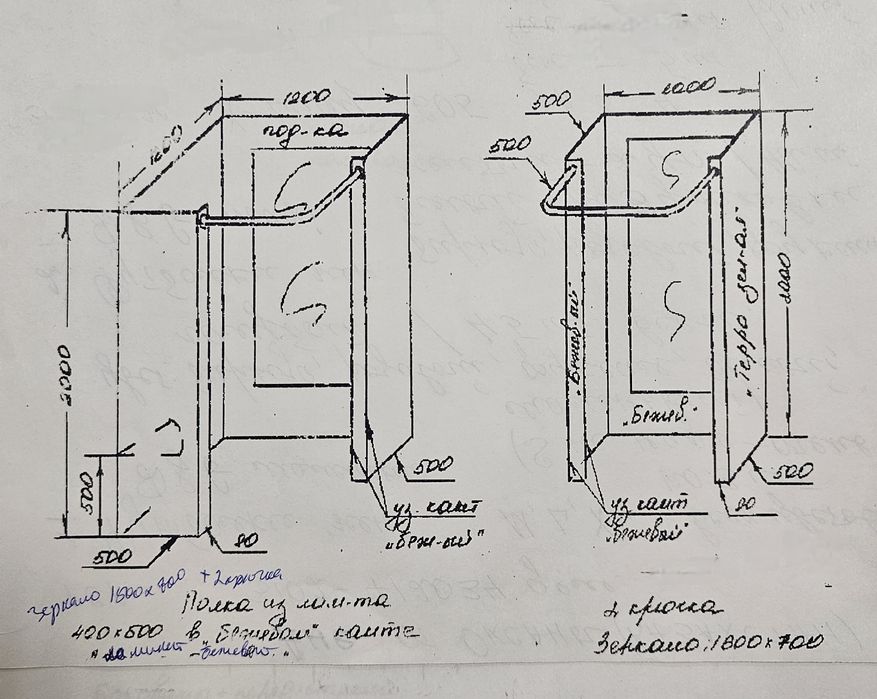 1200
1200
под-ка
2000
500
500
80
500
уз. кант
"беж-ый"
зеркало 1800х700 + 2 крючка
Полка из лам-та
400х500 в "бежевом" канте
"ламинат -бежевый"
500
500
1000
"Бежев-ый"
"Терро зем-ая"
2000
"Бежев."
500
80
уз. кант
"бежевый"
2 крючка
Зеркало 1800х700